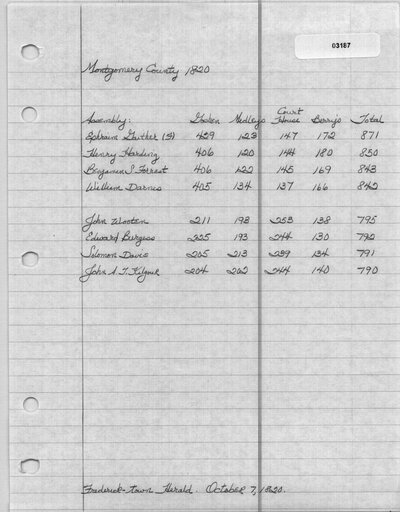 03187
Montgomery County 1820
Assembly: Goshen Medley's Court House Berry's Total
Ephraim Gaither (S) 429 123 147 172 871
Henry Harding 406 120 144 180 850
Benjamin S. Forrest 406 122 145 169 843
William Darnes 405 134 137 166 842
John Wooten 211 193 253 138 795
Edward Burgess 225 193 244 130 792
Solomon Davis 205 213 239 134 791
John A. T. Kilgour 204 202 244 140 790
Frederick-Town Herald. October 7, 1820.